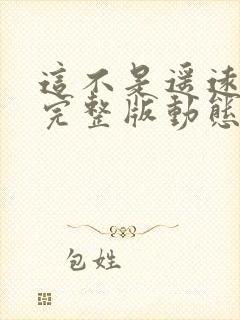 這不是遙遠
完整版動態
包姓